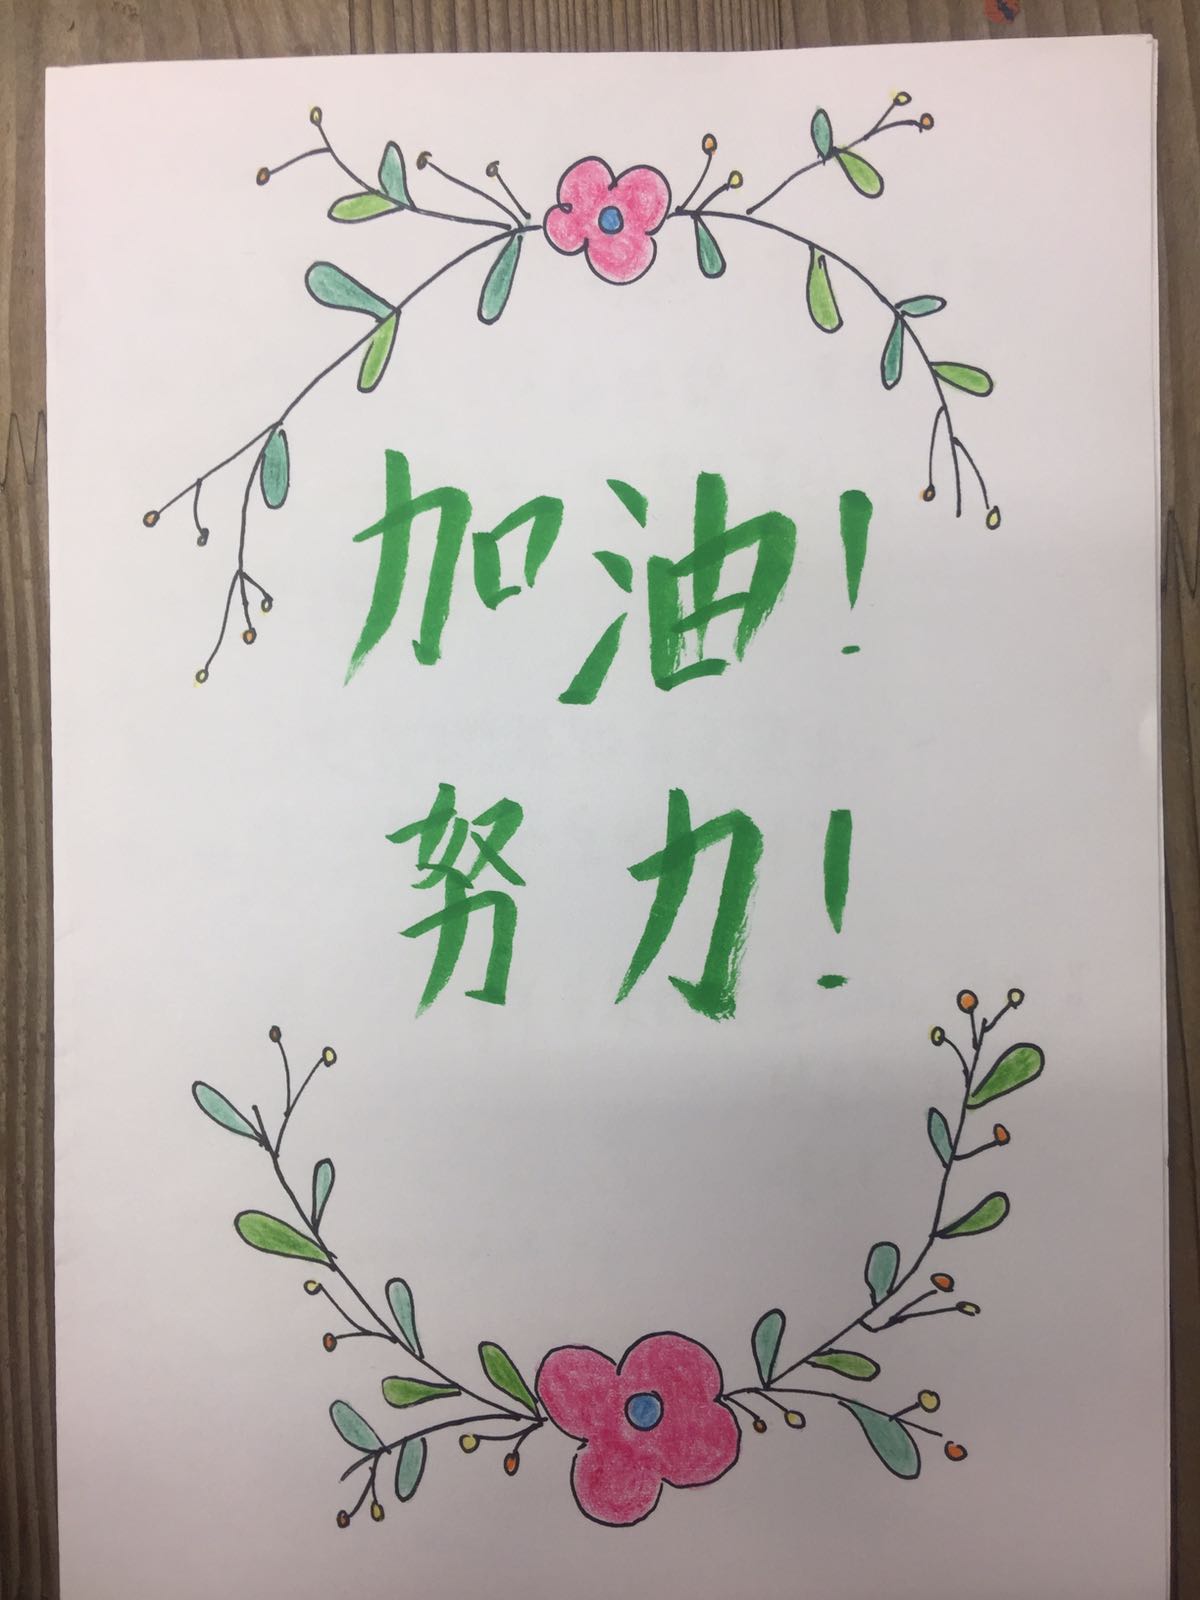 加油！
努力！